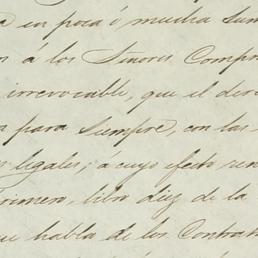 en poca ó mucha sum
á los Señores Compr
irrevocable, que el der
para siempre, con las
legales; a cuyo efecto ren
rimero, libro diez de la
ue habla de los Contrat